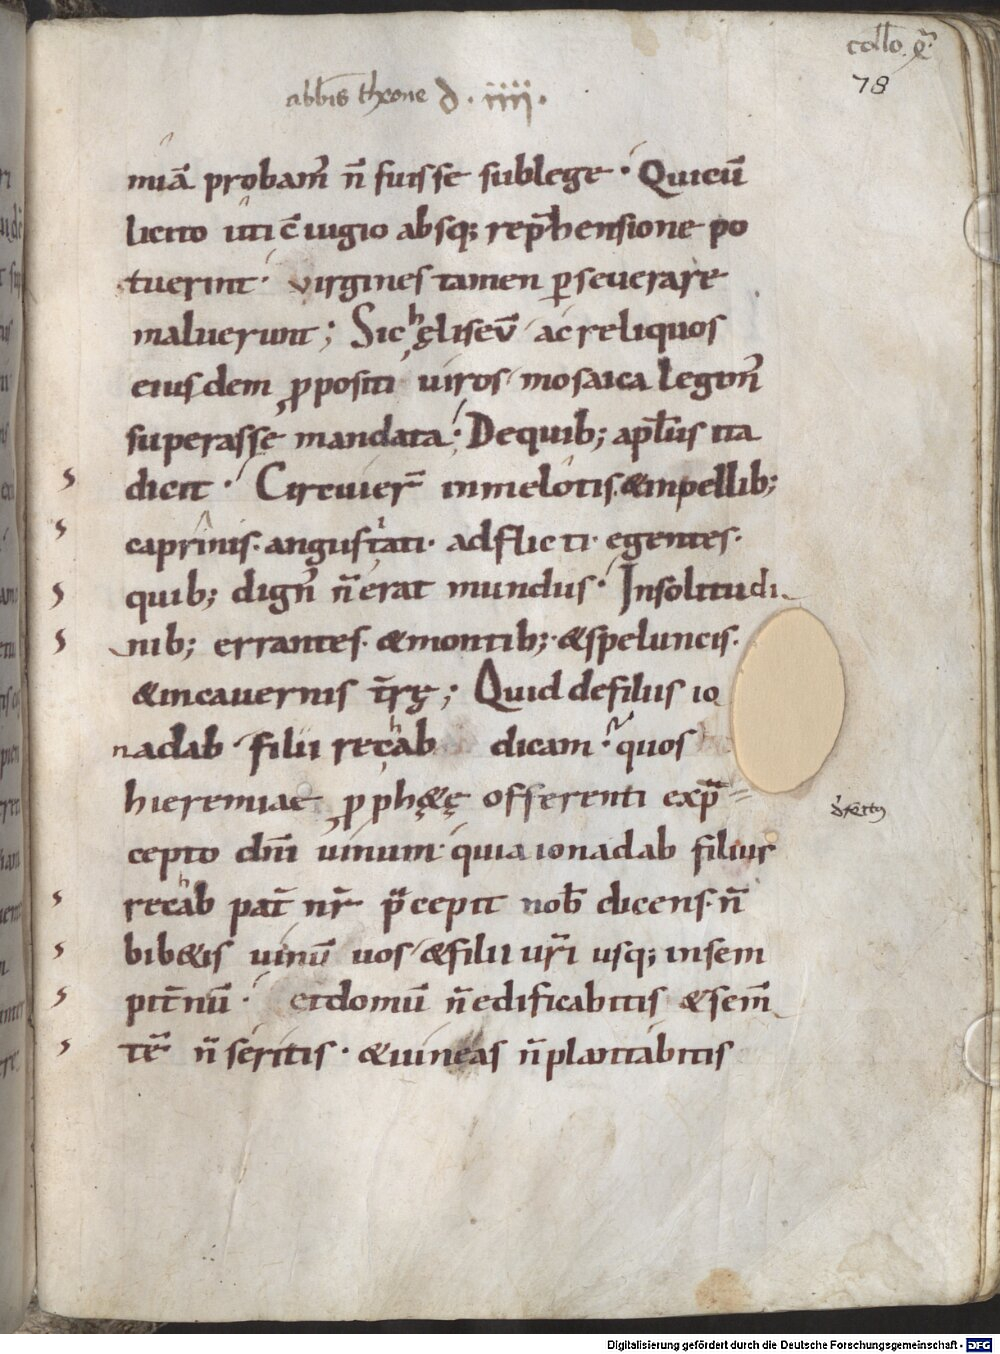 collo. q̃.
78
abb̄is theone d. iiii.
miā probam̄ n̄ fuisse sublege · Quicū
licito uti c̄iugio absq; rep̄hensione po
tuerint · virgines tamen p̱seuerare
maluerunt ; Sic hęliseū ac reliquos
eiusdem p̱positi uiros mosaica legem̄
superasse mandata · Dequib; apl̄us ita
dicit · Circuier̄ inmelotis &inpellib;
caprinis · angustiati · adflicti · egentes ·
quib; dign̄ n̄ erat mundus · Insolitudi
nib; errantes · &montib; · &speluncis ·
&incauernis t̄rę ; Quid defiliis io
nadab · filii rechab dicam · quos
hieremiae p̱ph&ę offerenti ex p̄
cepto dn̄i uinum · quia ionadab filius
rechab pat̄ nr̄ p̄cepit nob̄ dicens · n̄
bib&is uinū uos &filii ur̄i usq; insem
pit̄nū · etdomū n̄ edificabitis &sem̄
tē n̄ seritis · &uineas n̄ plantabitis
Digitalisierung gefördert durch die Deutsche Forschungsgemeinschaft - DFG